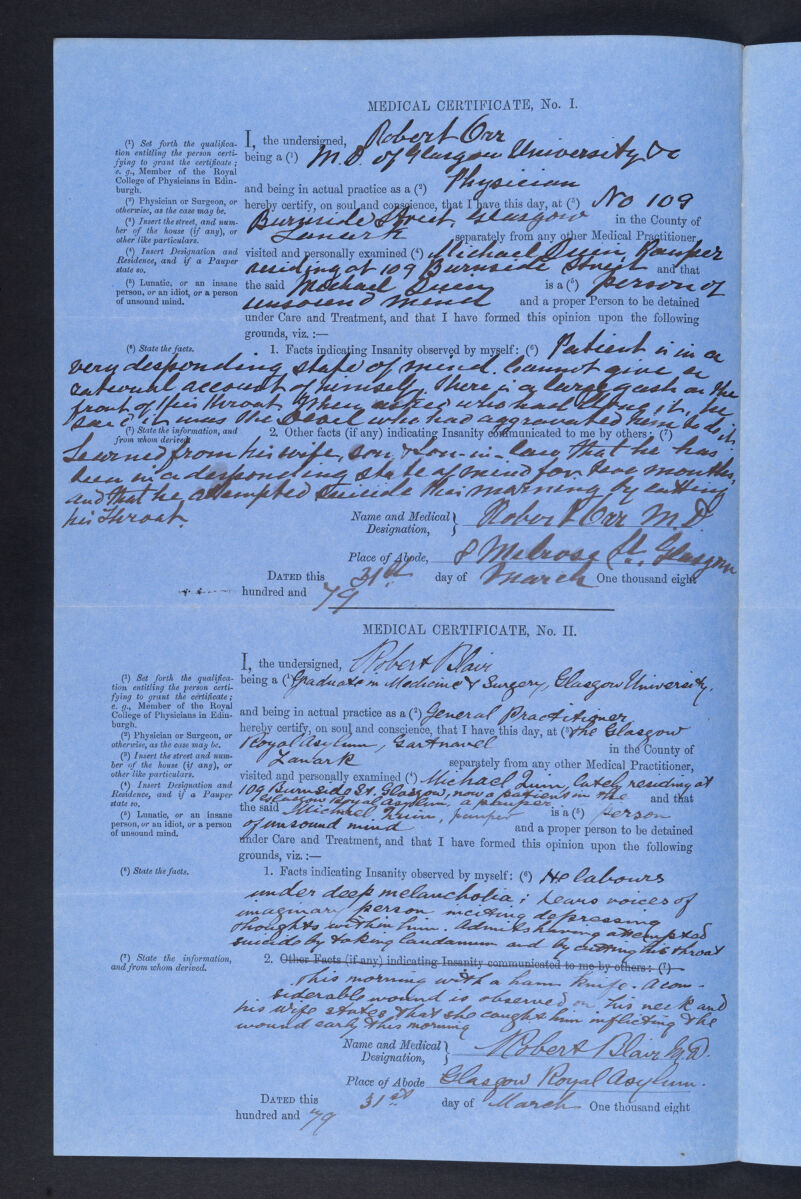 MEDICAL CERTIFICATE, No. I.
(¹) Set forth the qualifica-
tion entitling the person certi-
fying to grant the certificate;
e. g., Member of the Royal
College of Physicians in Edin-
burgh.
(²) Physician or Surgeon, or
otherwise, as the case may be.
(³) Insert the street, and num-
ber of the house (if any), or
other like particulars.
(⁴) Insert Designation and
Residence, and if a Pauper
state so.
(⁵) Lunatic, or an insane
person, or an idiot, or a person
of unsound mind.
I, the undersigned, Robert Orr
being a (¹) M.D. of Glasgow University &c
and being in actual practice as a (²) Physician
hereby certify, on soul and conscience, that I have this day, at (³) No 109
Burnside Street Glasgow in the County of
Lanark separately from any other Medical Practitioner,
visited and personally examined (⁴) Michael Quin, Pauper
residing at 109 Burnside Street and that
the said Michael Quin is a (⁵) person of
unsound mind and a proper Person to be detained
under Care and Treatment, and that I have formed this opinion upon the following
grounds, viz. :—
(⁶) State the facts.
1. Facts indicating Insanity observed by myself: (⁶) Patient is in a
very desponding state of mind. Cannot give a
rational account of himself. There is a large gash on the
front of his throat. When asked who had done it, he
said it was the Devil who had aggravated him to do it.
(⁷) State the information, and
from whom derived.
2. Other facts (if any) indicating Insanity communicated to me by others: (⁷)
Learned from his wife, son & son-in-law that he has
been in a desponding state of mind for two months,
and that he attempted suicide this morning by cutting
his throat
Name and Medical Designation, Robert Orr M.D.
Place of Abode, 8 Melrose St. Glasgow
DATED this 31st day of March One thousand eight
hundred and 79
MEDICAL CERTIFICATE, No. II.
(¹) Set forth the qualifica-
tion entitling the person certi-
fying to grant the certificate;
e. g., Member of the Royal
College of Physicians in Edin-
burgh.
(²) Physician or Surgeon, or
otherwise, as the case may be.
(³) Insert the street and num-
ber of the house (if any), or
other like particulars.
(⁴) Insert Designation and
Residence, and if a Pauper
state so.
(⁵) Lunatic, or an insane
person, or an idiot, or a person
of unsound mind.
I, the undersigned, Robert Blair
being a (¹) Graduate in Medicine & Surgery, Glasgow University.
and being in actual practice as a (²) General Practitioner
hereby certify, on soul and conscience, that I have this day, at (³) the Glasgow
Royal Asylum, Gartnavel in the County of
Lanark separately from any other Medical Practitioner,
visited and personally examined (⁴) Michael Quin, lately residing at
109 Burnside St. Glasgow, now a patient in the
Glasgow Royal Asylum, a pauper. and that
the said Michael Quin, pauper is a (⁵) person
of unsound mind and a proper person to be detained
under Care and Treatment, and that I have formed this opinion upon the following
grounds, viz. :—
(⁶) State the facts.
1. Facts indicating Insanity observed by myself: (⁶) He labours
under deep melancholia; hears voices of
imaginary person inciting depressing
thoughts within him. Admits having attempted
suicide by taking laudanum and by cutting his throat
(⁷) State the information,
and from whom derived.
2. Other Facts (if any) indicating Insanity communicated to me by others: (⁷)
this morning with a ham knife. A con-
siderable wound is observed on his neck and
his wife states that she caught him inflicting the
wound early this morning
Name and Medical Designation, Robert Blair M.D.
Place of Abode Glasgow Royal Asylum.
DATED this 31st day of March One thousand eight
hundred and 79